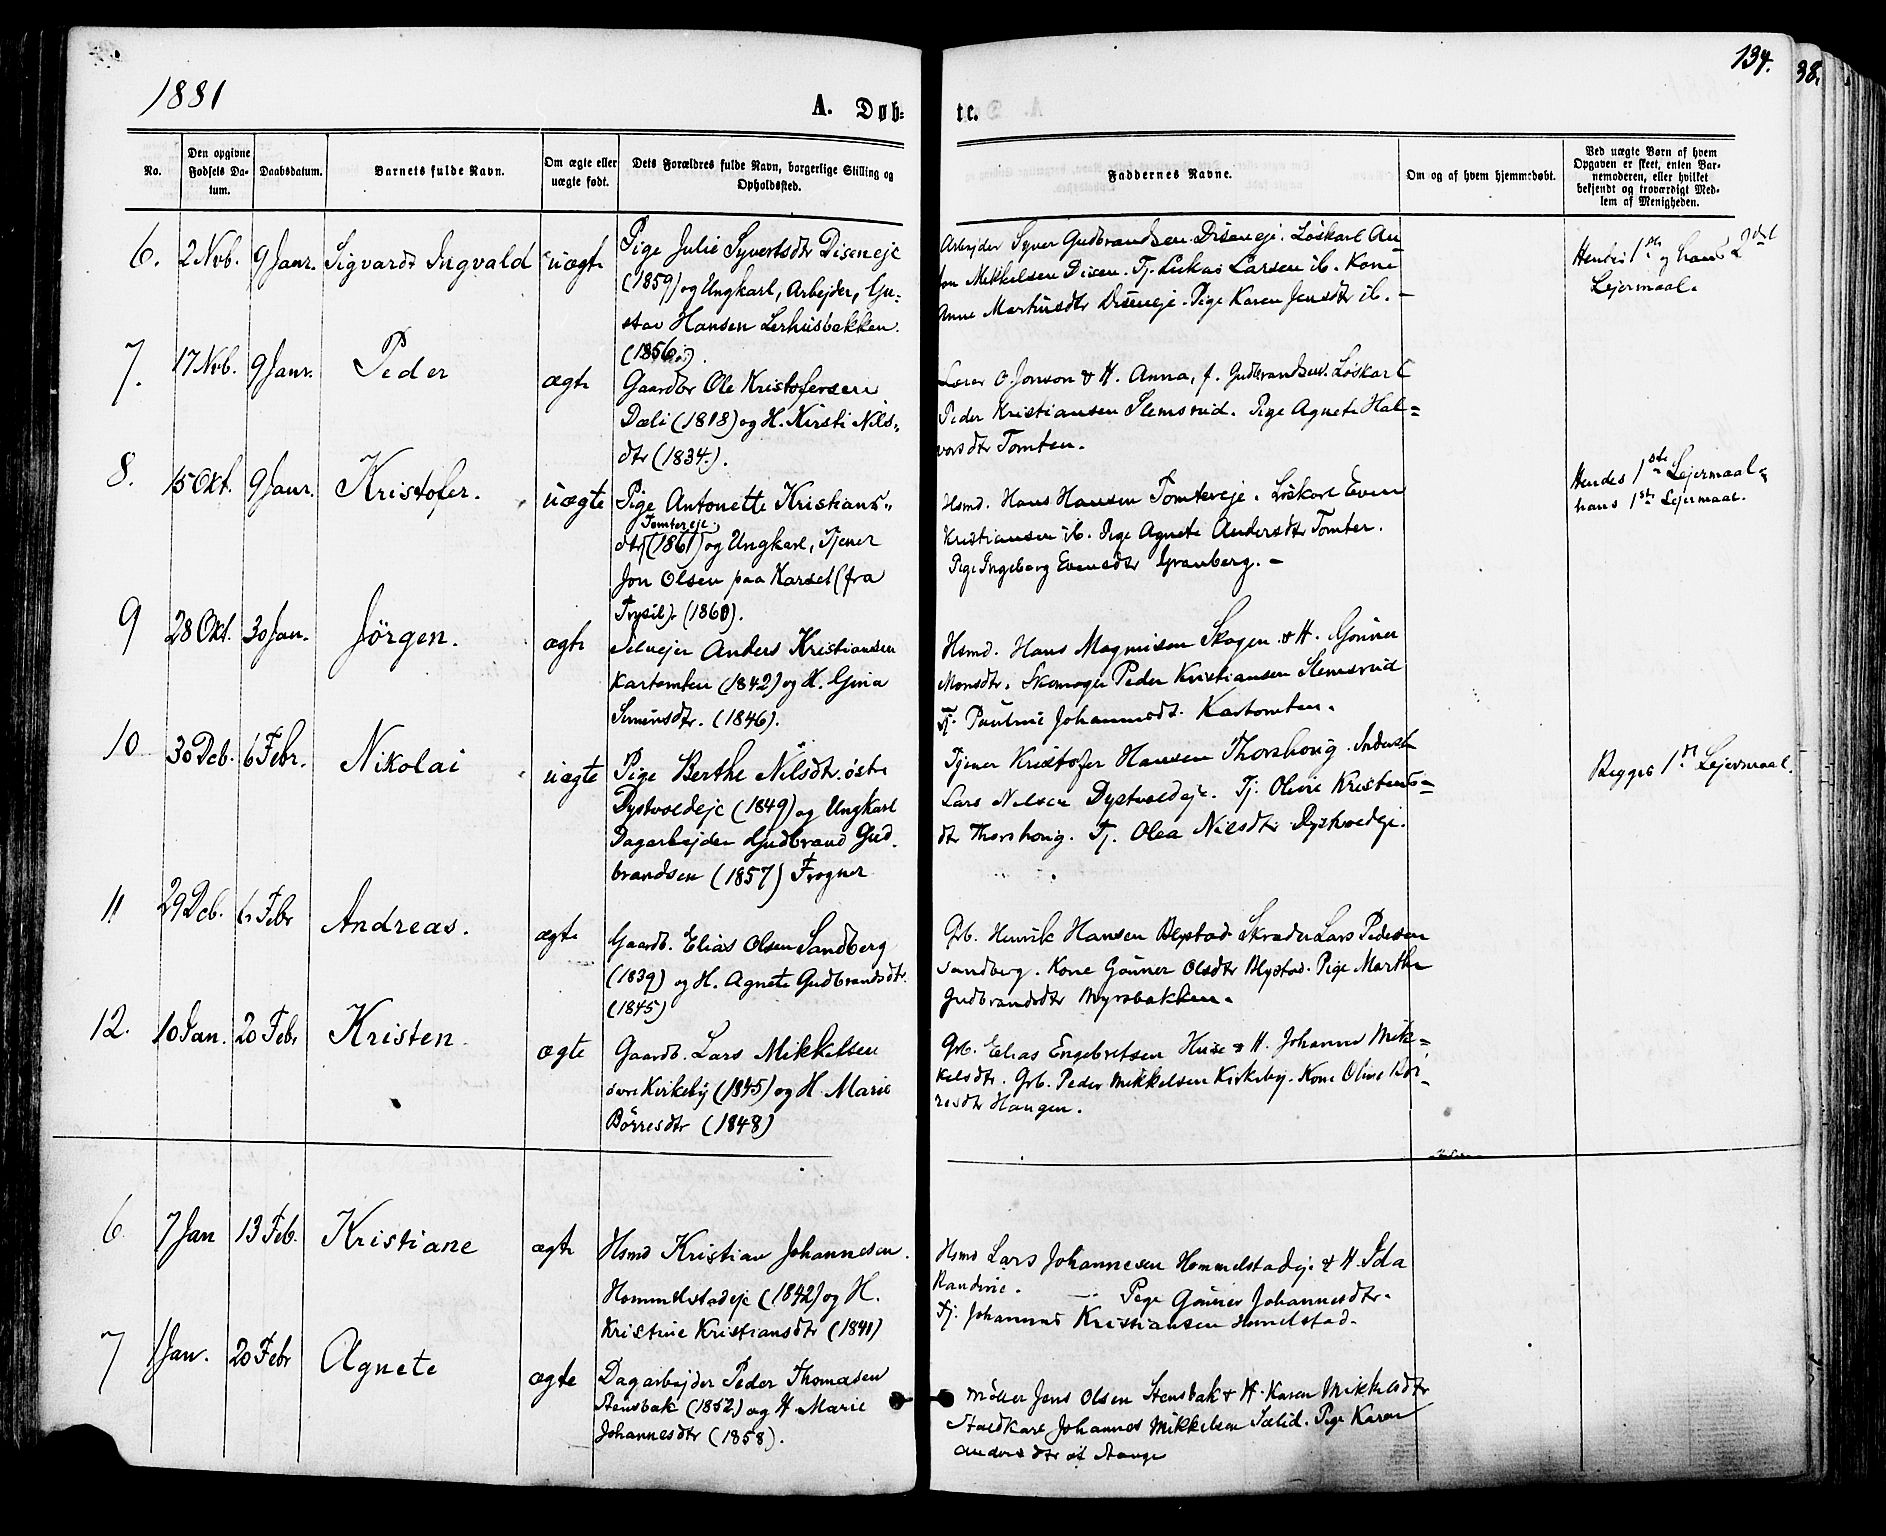 1881
134.
38.
A. Døb=
te.
No.
Den opgivne
Fødsels Da-
tum.
Daabsdatum.
Barnets fulde Navn.
Om ægte eller
uægte født.
Dets Forældres fulde Navn, borgerlige Stilling og
Opholdssted.
Faddernes Navne.
Om og af hvem hjemmedøbt.
Ved uægte Børn af hvem
Opgaven er skeet, enten Bar-
nemoderen, eller hvilket
bekjendt og troværdigt Med-
lem af Menigheden.
6. 2 Nvb. 9 Janr. Sigvardt Ingvald uægte
Pige Julie Syvertsdtr Diseneje
(1859) og Ungkarl, Arbejder, Gu-
stav Hansen Lerhusbakken
(1856).
Arbejder Syver Gudbrandsen Diseneje. Løskarl An-
ton Mikkelsen Disen. Tj. Lukas Larsen ib. Kone
Anne Martinsdtr Diseneje. Pige Karen Jensdtr ib. –
Hendes 1ste og hans 2det
Lejermaal.
7. 17 Nvb. 9 Janr. Peder ægte
Gaardbr Ole Kristofersen
Dæli (1818) og H. Kirsti Nils-
dtr (1834.).
Lærer O. Jonson & H. Anna, f. Gudbrandsen. Løskarl
Peder Kristiansen Slemsrud. Pige Agnete Hal=
vorsdtr Tomten.
8. 15 Okt. 9 Janr. Kristofer. uægte
Pige Antonette Kristians-
Tomtereje
dtr (1861) og Ungkarl, Tjener
Jon Olsen paa Karset (fra
Trysil) (1860).
Hsmd. Hans Hansen Tomtereje. Løskarl Even
Kristiansen ib. Pige Agnete Andersdtr Tomter.
Pige Ingeborg Evensdtr Granberg. –
Hendes 1ste Lejermaal
hans 1ste Lejermaal.
9 28 Okt. 30 Jan. Jörgen. ægte
Selvejer Anders Kristiansen
Kartomten (1842) og H. Gina
Simensdtr. (1846).
Hsmd. Hans Magnusen Skogen & H. Gunner
Monsdtr. Skomager Peder Kristiansen Slemsrud
Tj. Pauline Johannesdt. Kartomten.
10 30 Dcb. 6 Febr. Nikolai uægte
Pige Berthe Nilsdtr östre
Dystvoldeje (1849) og Ungkarl
Dagarbejder Gudbrand Gud-
brandsen (1857) Frogner
Tjener Kristofer Hansen Thorshoug. Inderst
Lars Nilsen Dystvoldeje. Tj. Oline Kristens=
dtr Thorshoug. Tj. Olea Nilsdtr Dystvoldeje.
Begges 1ste Lejermaal.
11 29 Dcb. 6 Febr Andreas. ægte
Gaardb. Elias Olsen Sandberg
(1839) og H. Agnete Gudbrandsdtr.
(1845)
Grb. Henrik Hansen Blystad Skræder Lars Pedersen
Sandberg. Kone Gunner Olsdtr Blystad. Pige Marthe
Gudbrandsdtr Myrsbakken.
12. 10 Jan. 20 Febr Kristen. ægte
Gaardb. Lars Mikkelsen
Kirkeby (1845) og H. Marie
Börresdtr (1848)
Grb. Elias Engebretsen Huse & H. Johanne Mik=
kelsdtr. Grb. Peder Mikkelsen Kirkeby. Kone Oline Bör-
resdtr Haugen.
6 7 Jan 13 Feb. Kristiane ægte
Hsmd Kristian Johannesen
Hommelstadeje (1842) og H.
Kristine Kristiansdtr (1841)
Hsmd Lars Johannesen Hommelstadeje & H. Ida
Randine. – Pige Gunner Johannesdtr.
Tj. Johannes Kristiansen Hmelstad.
7 1 Jan. 20 Febr Agnete ægte
Dagarbejder Peder Thomasen
Stensbak (1852) og H Marie
Johannesdtr (1858).
Møller Jens Olsen Stensbak & H. Karen Mikkelsdtr
Staldkarl Johannes Mikkelsen Sælid. Pige Karen
Andersdtr af Stange